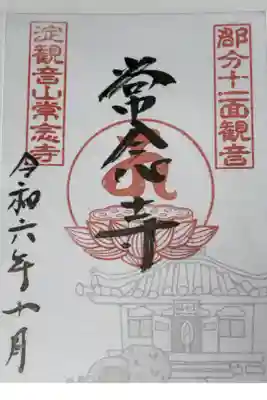 郡分十一面観音
常念寺
淀観音山常念寺
令和六年十月